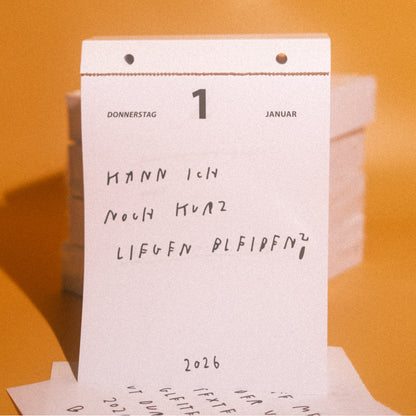 DONNERSTAG 1 JANUAR
KANN ICH
NOCH KURZ
LIEGEN BLEIBEN?
2026